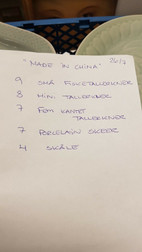 "MADE IN CHINA" 26/2
9 SMÅ FIRETALLERKNER
8 MINI TALLERKNER
7 FEM KANTET
TALLERKNER
7 PORCELAIN SKEER
4 SKÅLE